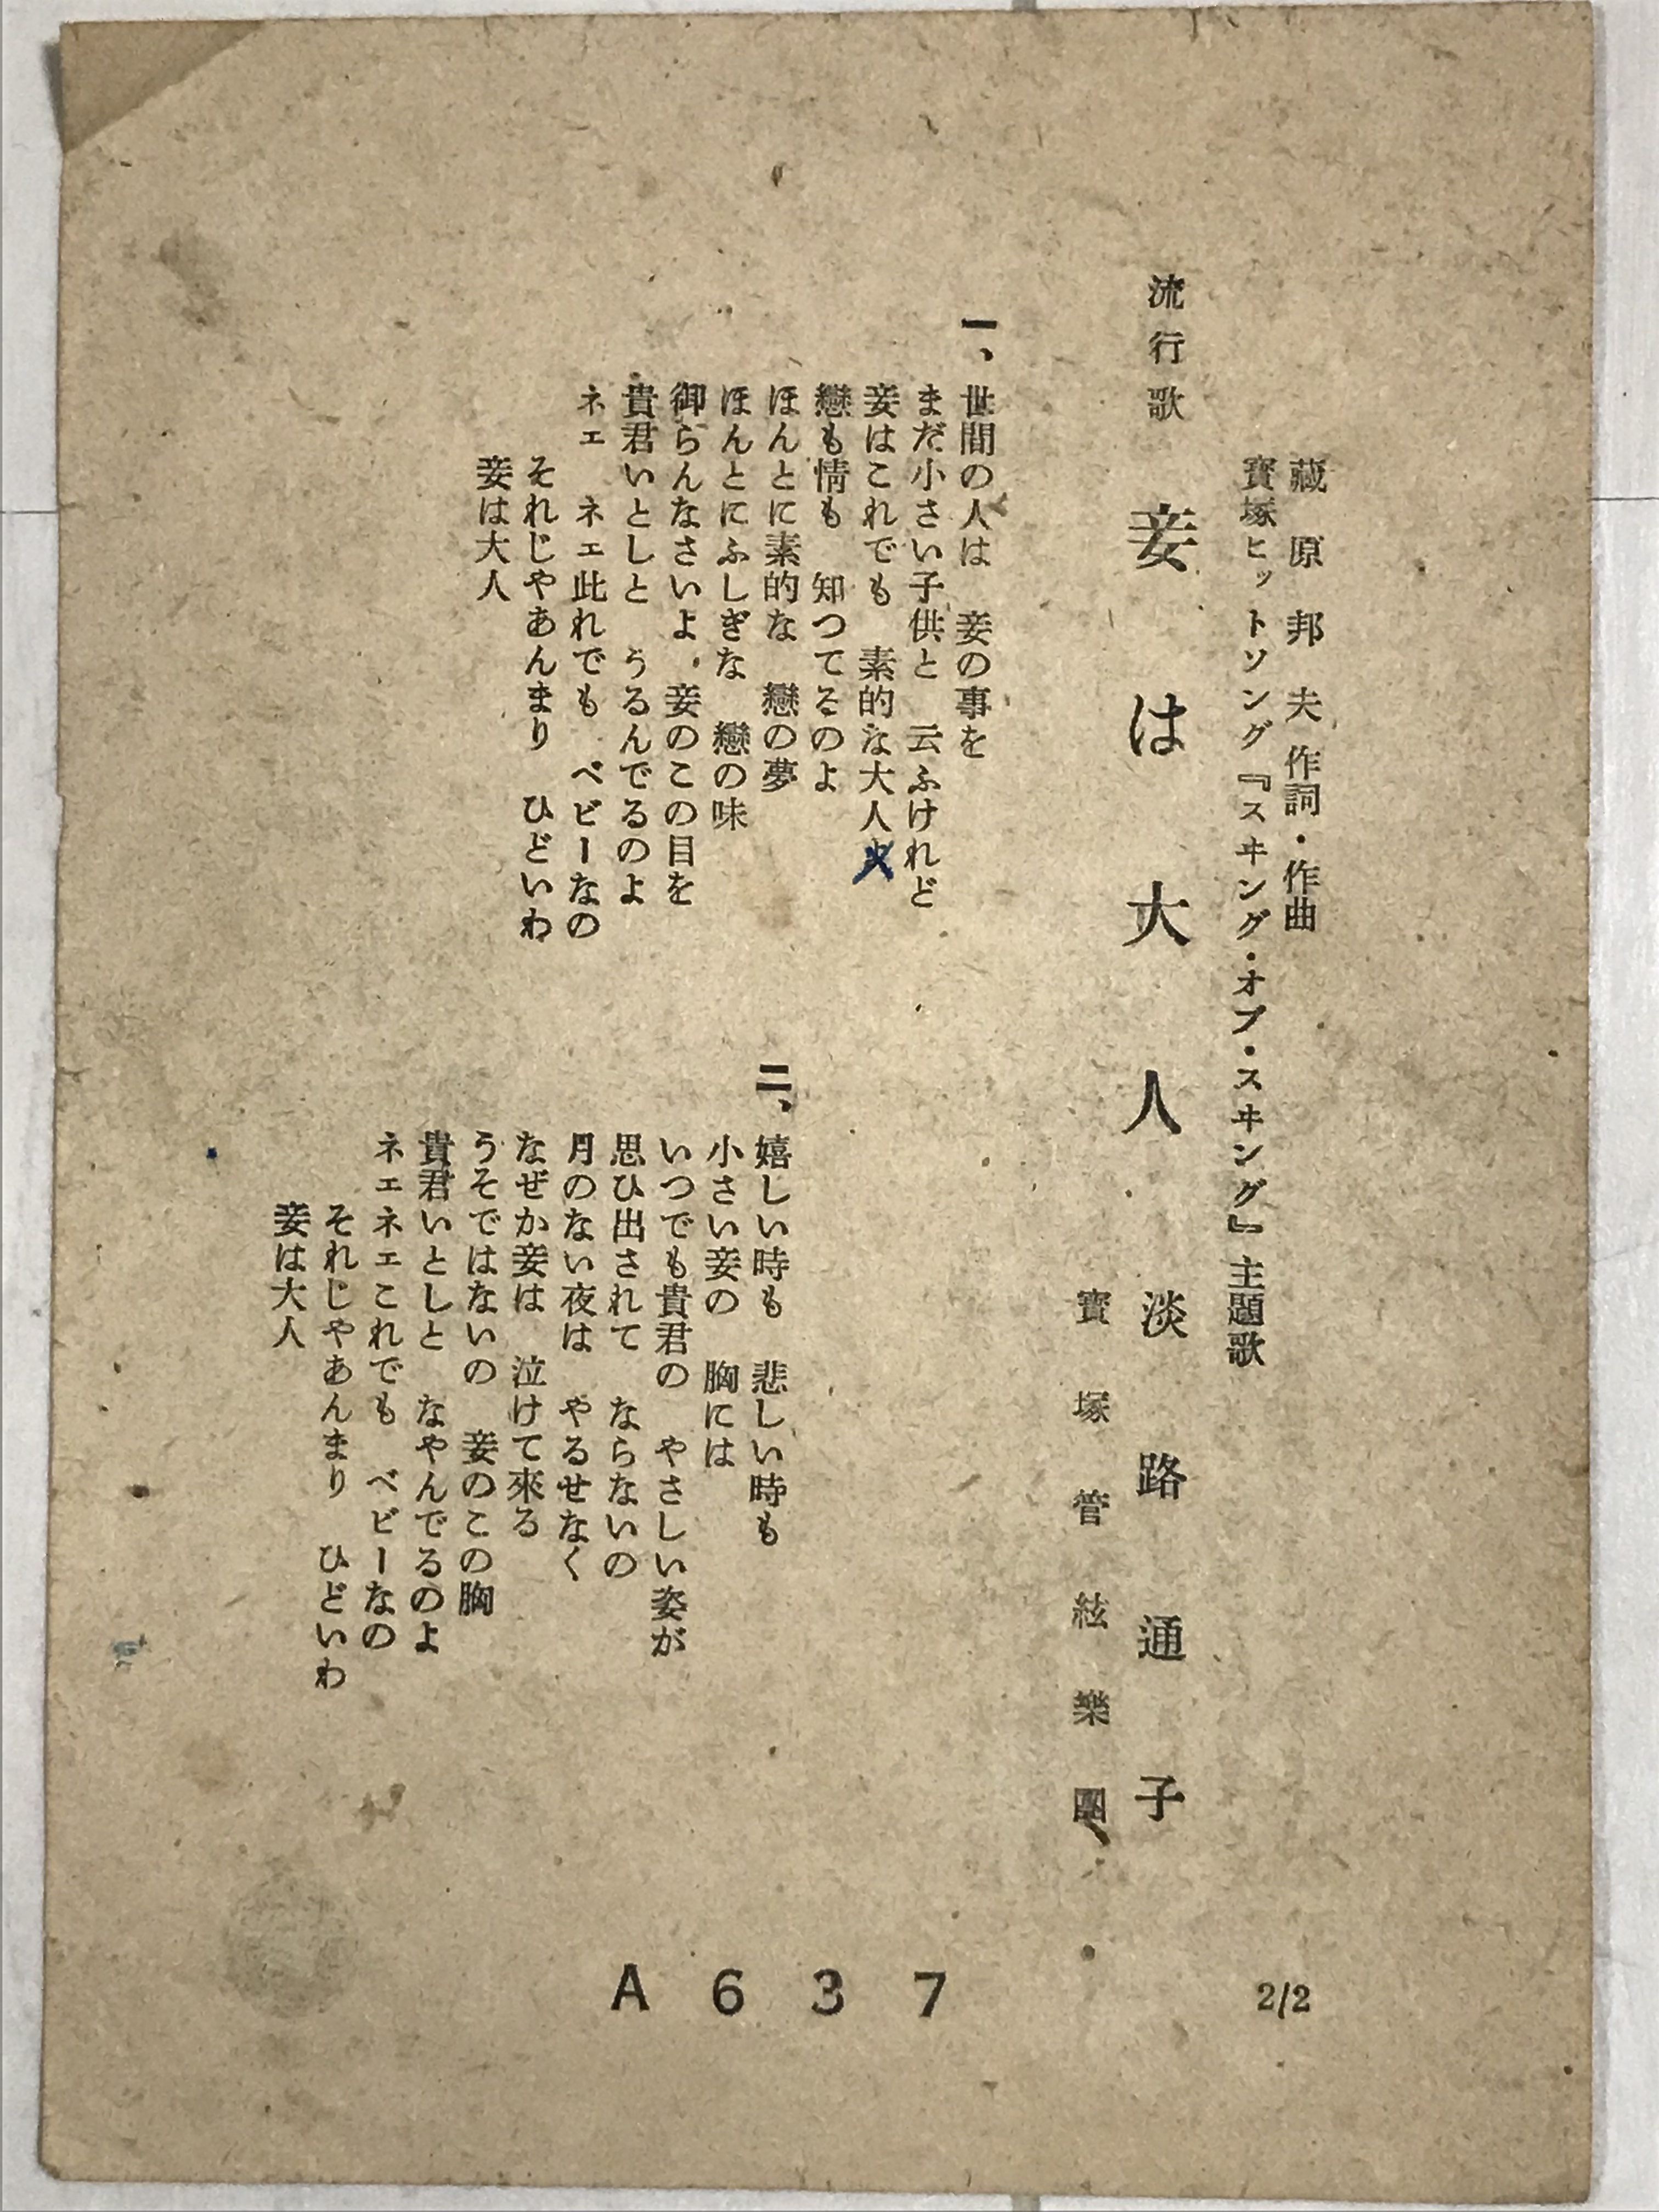 藏原邦夫 作詞・作曲
寳塚ヒットソング『スヰング・オブ・スヰング』主題歌
流行歌 妾は大人 淡路通子
寳塚管絃樂團
一、世間の人は 妾の事を
まだ小さい子供と 云ふけれど
妾はこれでも 素的な大人
戀も情も 知つてるのよ
ほんとに素的な 戀の夢
ほんとにふしぎな 戀の味
御らんなさいよ 妾のこの目を
貴君いとしと うるんでるのよ
ネェ ネェ此れでも ベビーなの
それじやあんまり ひどいわ
妾は大人
二、嬉しい時も 悲しい時も
小さい妾の 胸には
いつでも貴君の やさしい姿が
思ひ出されて ならないの
月のない夜は やるせなく
なぜか妾は 泣けて來る
うそではないの 妾のこの胸
貴君いとしと なやんでるのよ
ネェネェこれでも ベビーなの
それじやあんまり ひどいわ
妾は大人
A637
2/2